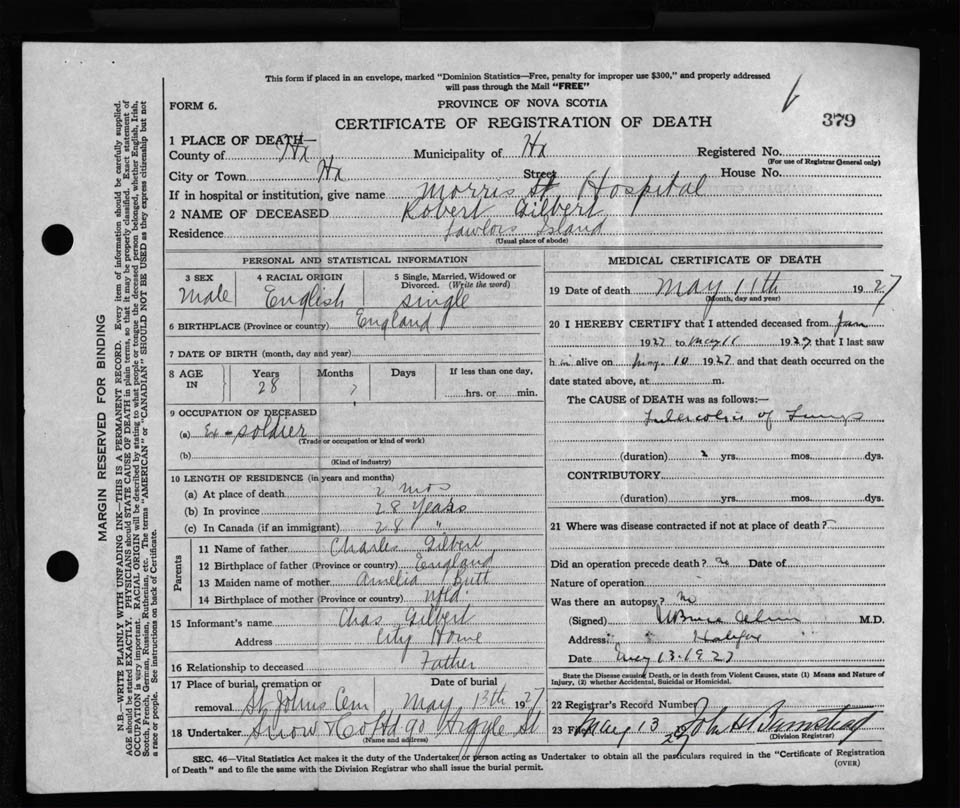 This form if placed in an envelope, marked "Dominion Statistics—Free, penalty for improper use $300," and properly addressed
will pass through the Mail "FREE"
FORM 6.
PROVINCE OF NOVA SCOTIA
CERTIFICATE OF REGISTRATION OF DEATH
379
1 PLACE OF DEATH—
County of Hx Municipality of Hx Registered No.
(For use of Registrar General only)
City or Town Hx Street House No.
If in hospital or institution, give name Morris St Hospital
2 NAME OF DECEASED Robert Gilbert
Residence Lawlors Island
(Usual place of abode)
PERSONAL AND STATISTICAL INFORMATION
3 SEX Male
4 RACIAL ORIGIN English
5 Single, Married, Widowed or Divorced. (Write the word) single
6 BIRTHPLACE (Province or country) England
7 DATE OF BIRTH (month, day and year)
8 AGE IN Years 28 Months ? Days If less than one day, hrs. or min.
9 OCCUPATION OF DECEASED
(a) Ex-soldier
(Trade or occupation or kind of work)
(b)
(Kind of industry)
10 LENGTH OF RESIDENCE (in years and months)
(a) At place of death 2 mos
(b) In province 28 Years
(c) In Canada (if an immigrant) 28 "
Parents
11 Name of father Charles Gilbert
12 Birthplace of father (Province or country) England
13 Maiden name of mother Amelia Butt
14 Birthplace of mother (Province or country) Nfld
15 Informant's name Chas Gilbert
Address City Home
16 Relationship to deceased Father
17 Place of burial, cremation or removal St Johns Cem
Date of burial May 13th 1927
18 Undertaker Snow & Co Ltd 90 Argyle St
(Name and address)
MEDICAL CERTIFICATE OF DEATH
19 Date of death May 11th 1927
(Month, day and year)
20 I HEREBY CERTIFY that I attended deceased from
1927 to May 11 1927 that I last saw
h im alive on May 10 1927 and that death occurred on
date stated above, at m.
The CAUSE of DEATH was as follows:—
Tuberculosis of Lungs
(duration) 2 yrs. mos. dys.
CONTRIBUTORY
(duration) yrs. mos. dys.
21 Where was disease contracted if not at place of death?
Did an operation precede death? No Date of
Nature of operation
Was there an autopsy? No
(Signed) M.D.
Address Halifax
Date May 13-1927
State the Disease causing Death, or in death from Violent Causes, state (1) Means and Nature of
Injury, (2) whether Accidental, Suicidal or Homicidal.
22 Registrar's Record Number
23 Filed May 13 27 John H Barnstead
(Division Registrar)
SEC. 46—Vital Statistics Act makes it the duty of the Undertaker or person acting as Undertaker to obtain all the particulars required in the "Certificate of Registration
of Death" and to file the same with the Division Registrar who shall issue the burial permit.
(OVER)
MARGIN RESERVED FOR BINDING
N.B.—WRITE PLAINLY WITH UNFADING INK—THIS IS A PERMANENT RECORD. Every item of information should be carefully supplied.
AGE should be stated EXACTLY. PHYSICIANS should STATE CAUSE OF DEATH in plain terms, so that it may be properly classified. Exact statement of
OCCUPATION is very important. RACIAL ORIGIN will be described by stating to what people or tongue the deceased person belonged, whether English, Irish,
Scotch, French, German, Russian, Ruthenian, etc. The terms "AMERICAN" or "CANADIAN" SHOULD NOT BE USED as they express citizenship but not
a race or people. See instructions on back of Certificate.